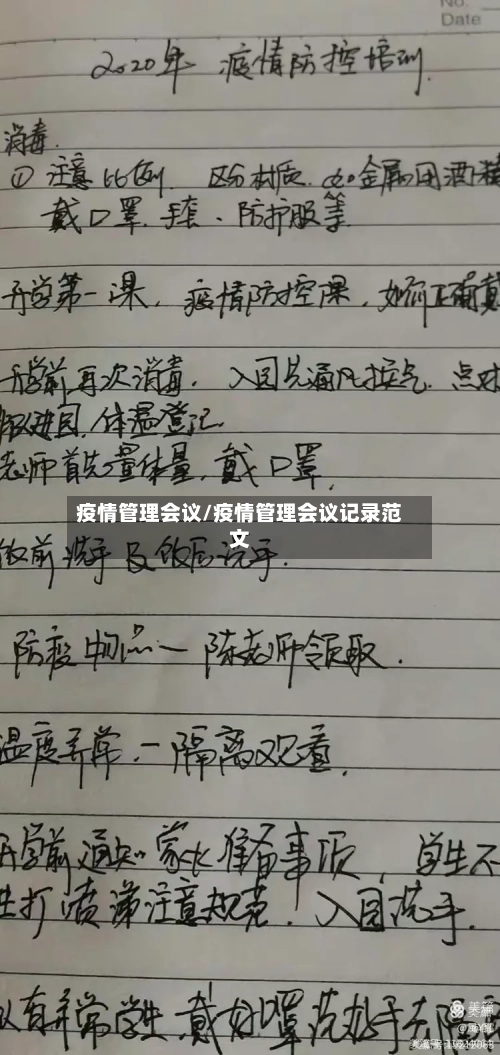 No.
Date
2020年 疫情防控培训.
消毒.
① 注意比例. 区分材质. 金属用酒精
戴口罩. 手套、防护服等
开学第一课, 疫情防控课, 如何正确戴
开学前再次消毒. 入园先通风换气. 点对
进园, 体温登记
老师首先量体量, 戴口罩.
疫情管理会议/疫情管理会议记录范
文
饭前洗手及饭后洗手.
防疫物品一陈老师领取.
温度异常. 一隔离观查.
开学前通知家长准备事项, 学生不
打喷涕注意规范. 入园洗手.
有异常学生, 戴好口罩
美篇